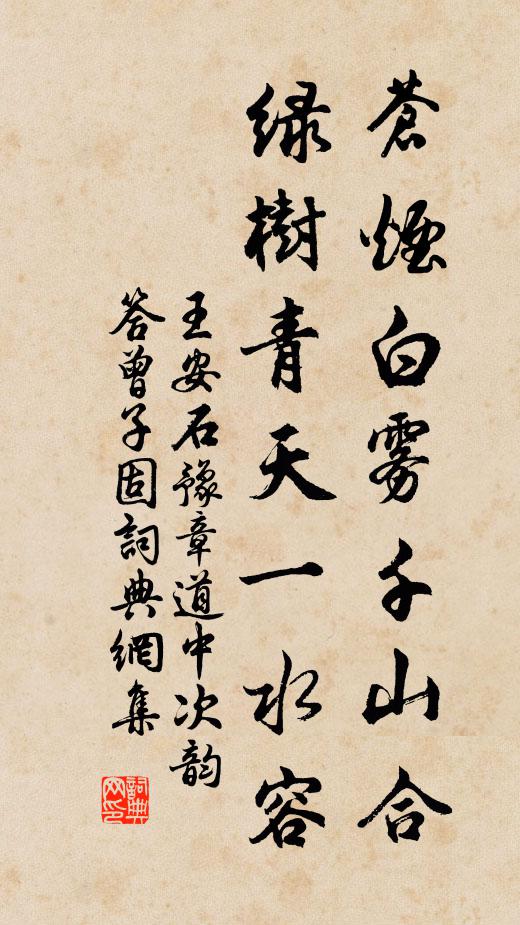 蒼煙白雾千山合
緑樹青天一水容
王安石豫章道中次韵
答曾子固詞典網集
詞典网印